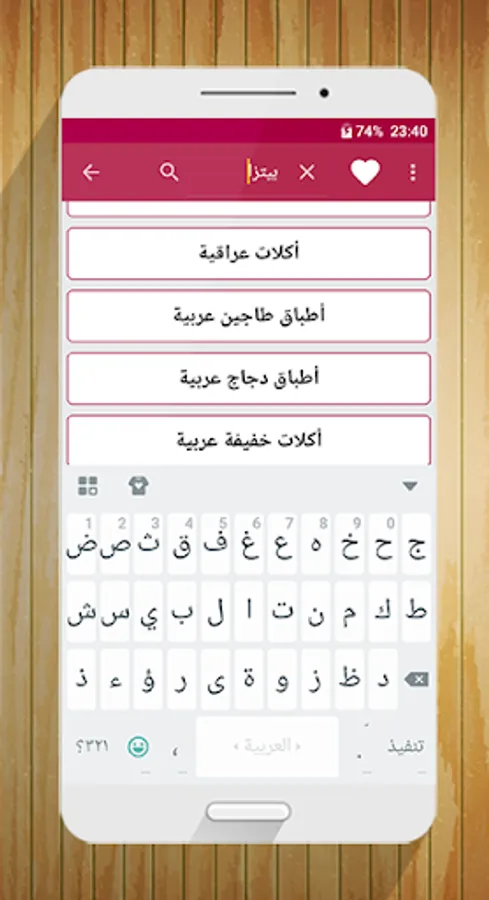 74% 23:40
بيتزا
أكلات عراقية
أطباق طاجين عربية
أطباق دجاج عربية
أكلات خفيفة عربية
1 2 3 4 5 6 7 8 9 0
ض ص ث ق ف غ ع ه خ ح ج
ش س ي ب ل ا ت ن م ك ط
ذ ء ؤ ر ى ة و ز ظ د
٣٢١؟ ، ‹ العربية › . تنفيذ